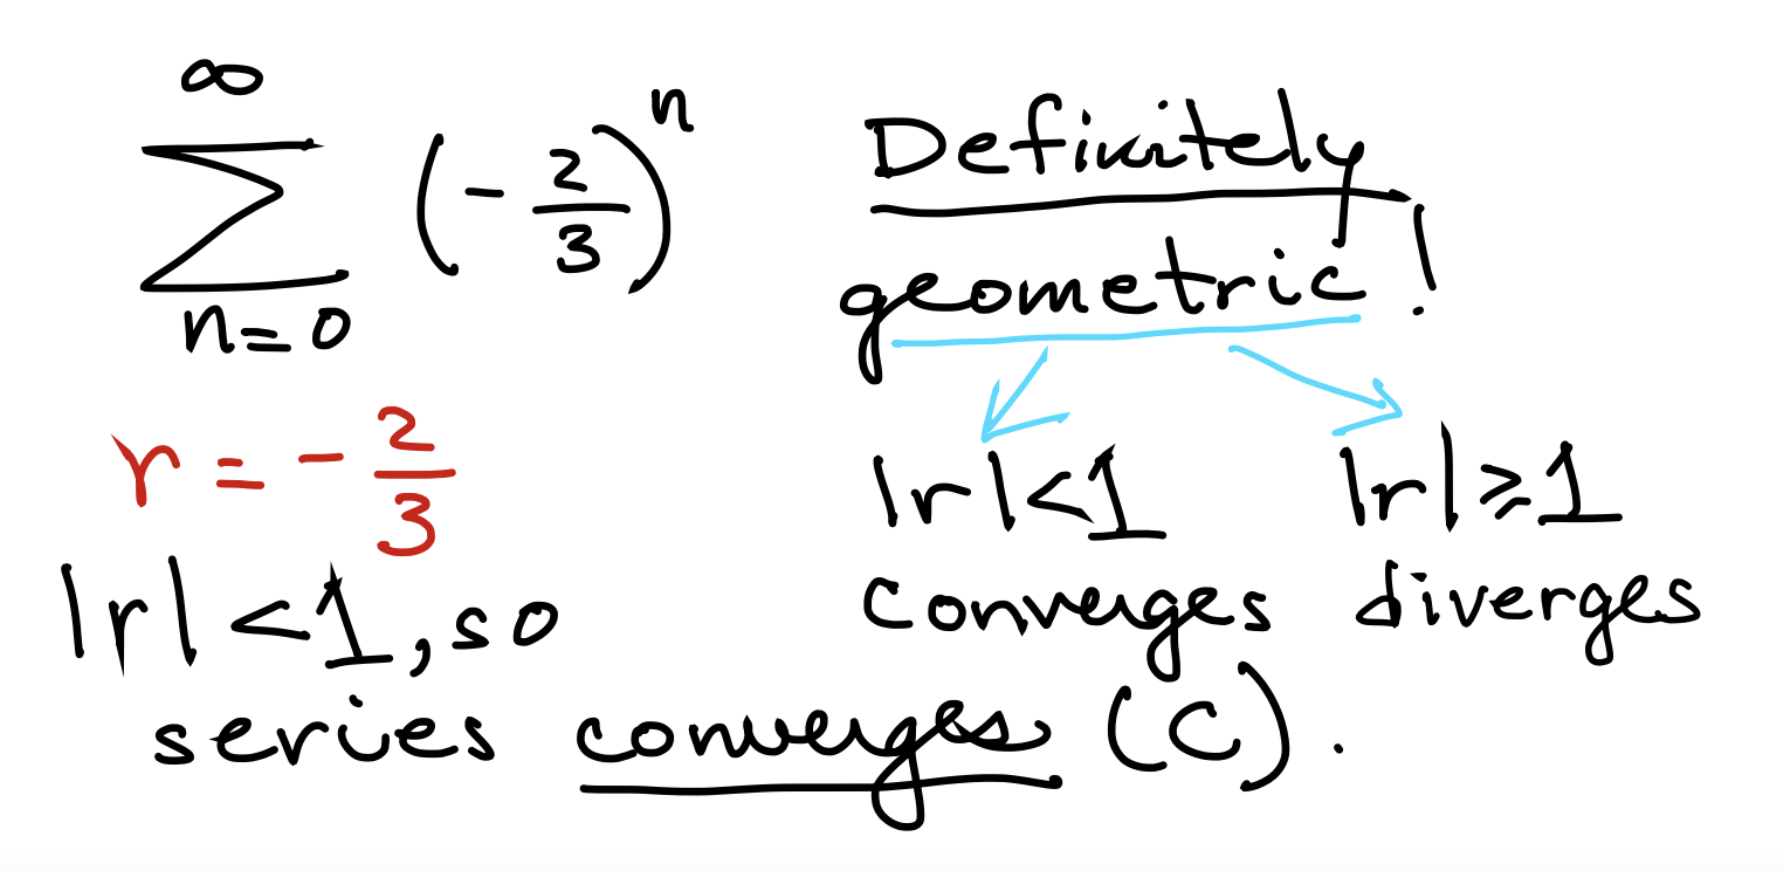 ∞
∑ (-2/3)^n
n=0
Definitely
geometric!
r = -2/3
|r|<1
converges
|r|⩾1
diverges
|r|<1, so
series converges (C).